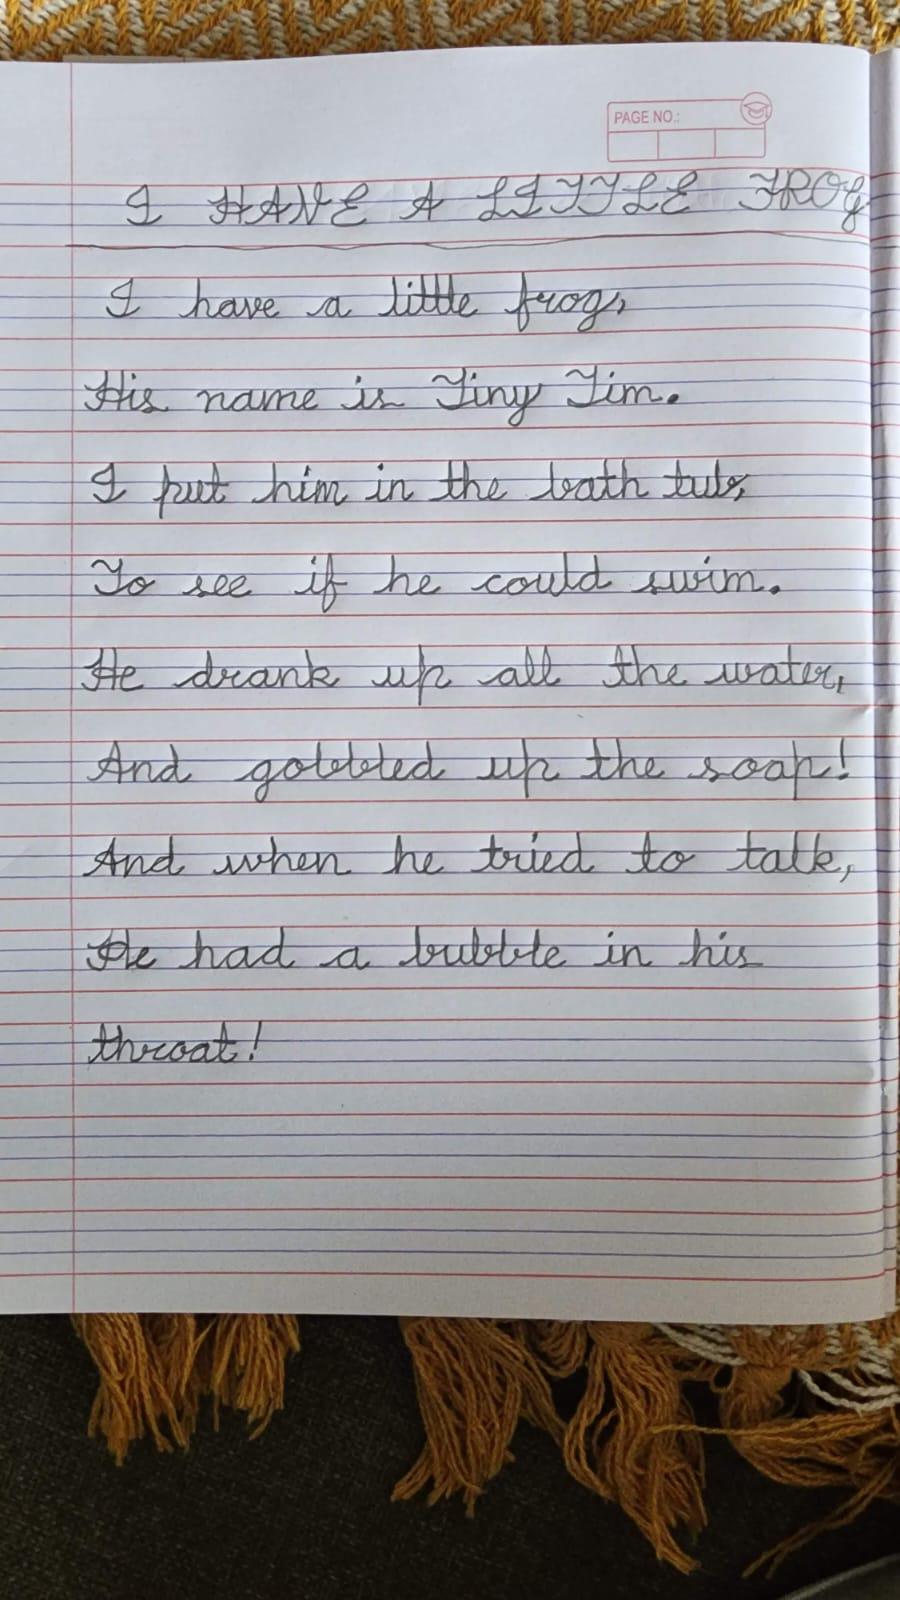 PAGE NO.:
I HAVE A LITTLE FROG
I have a little frog,
His name is Tiny Tim.
I put him in the bath tub,
To see if he could swim.
He drank up all the water,
And gobbled up the soap!
And when he tried to talk,
He had a bubble in his
throat!